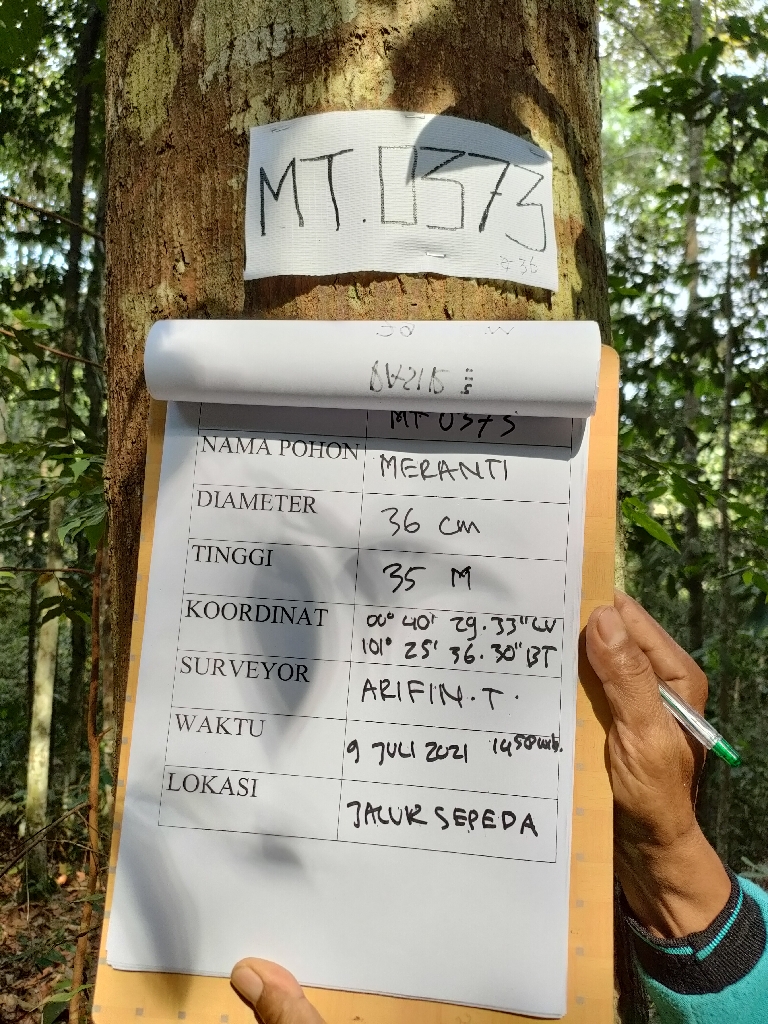 MT.0373
MT 0373
NAMA POHON MERANTI
DIAMETER 36 cm
TINGGI 35 M
KOORDINAT 00° 40' 29.33" LU
101° 25' 36.30" BT
SURVEYOR ARIFIN.T.
WAKTU 9 JULI 2021 1450 wib.
LOKASI JALUR SEPEDA